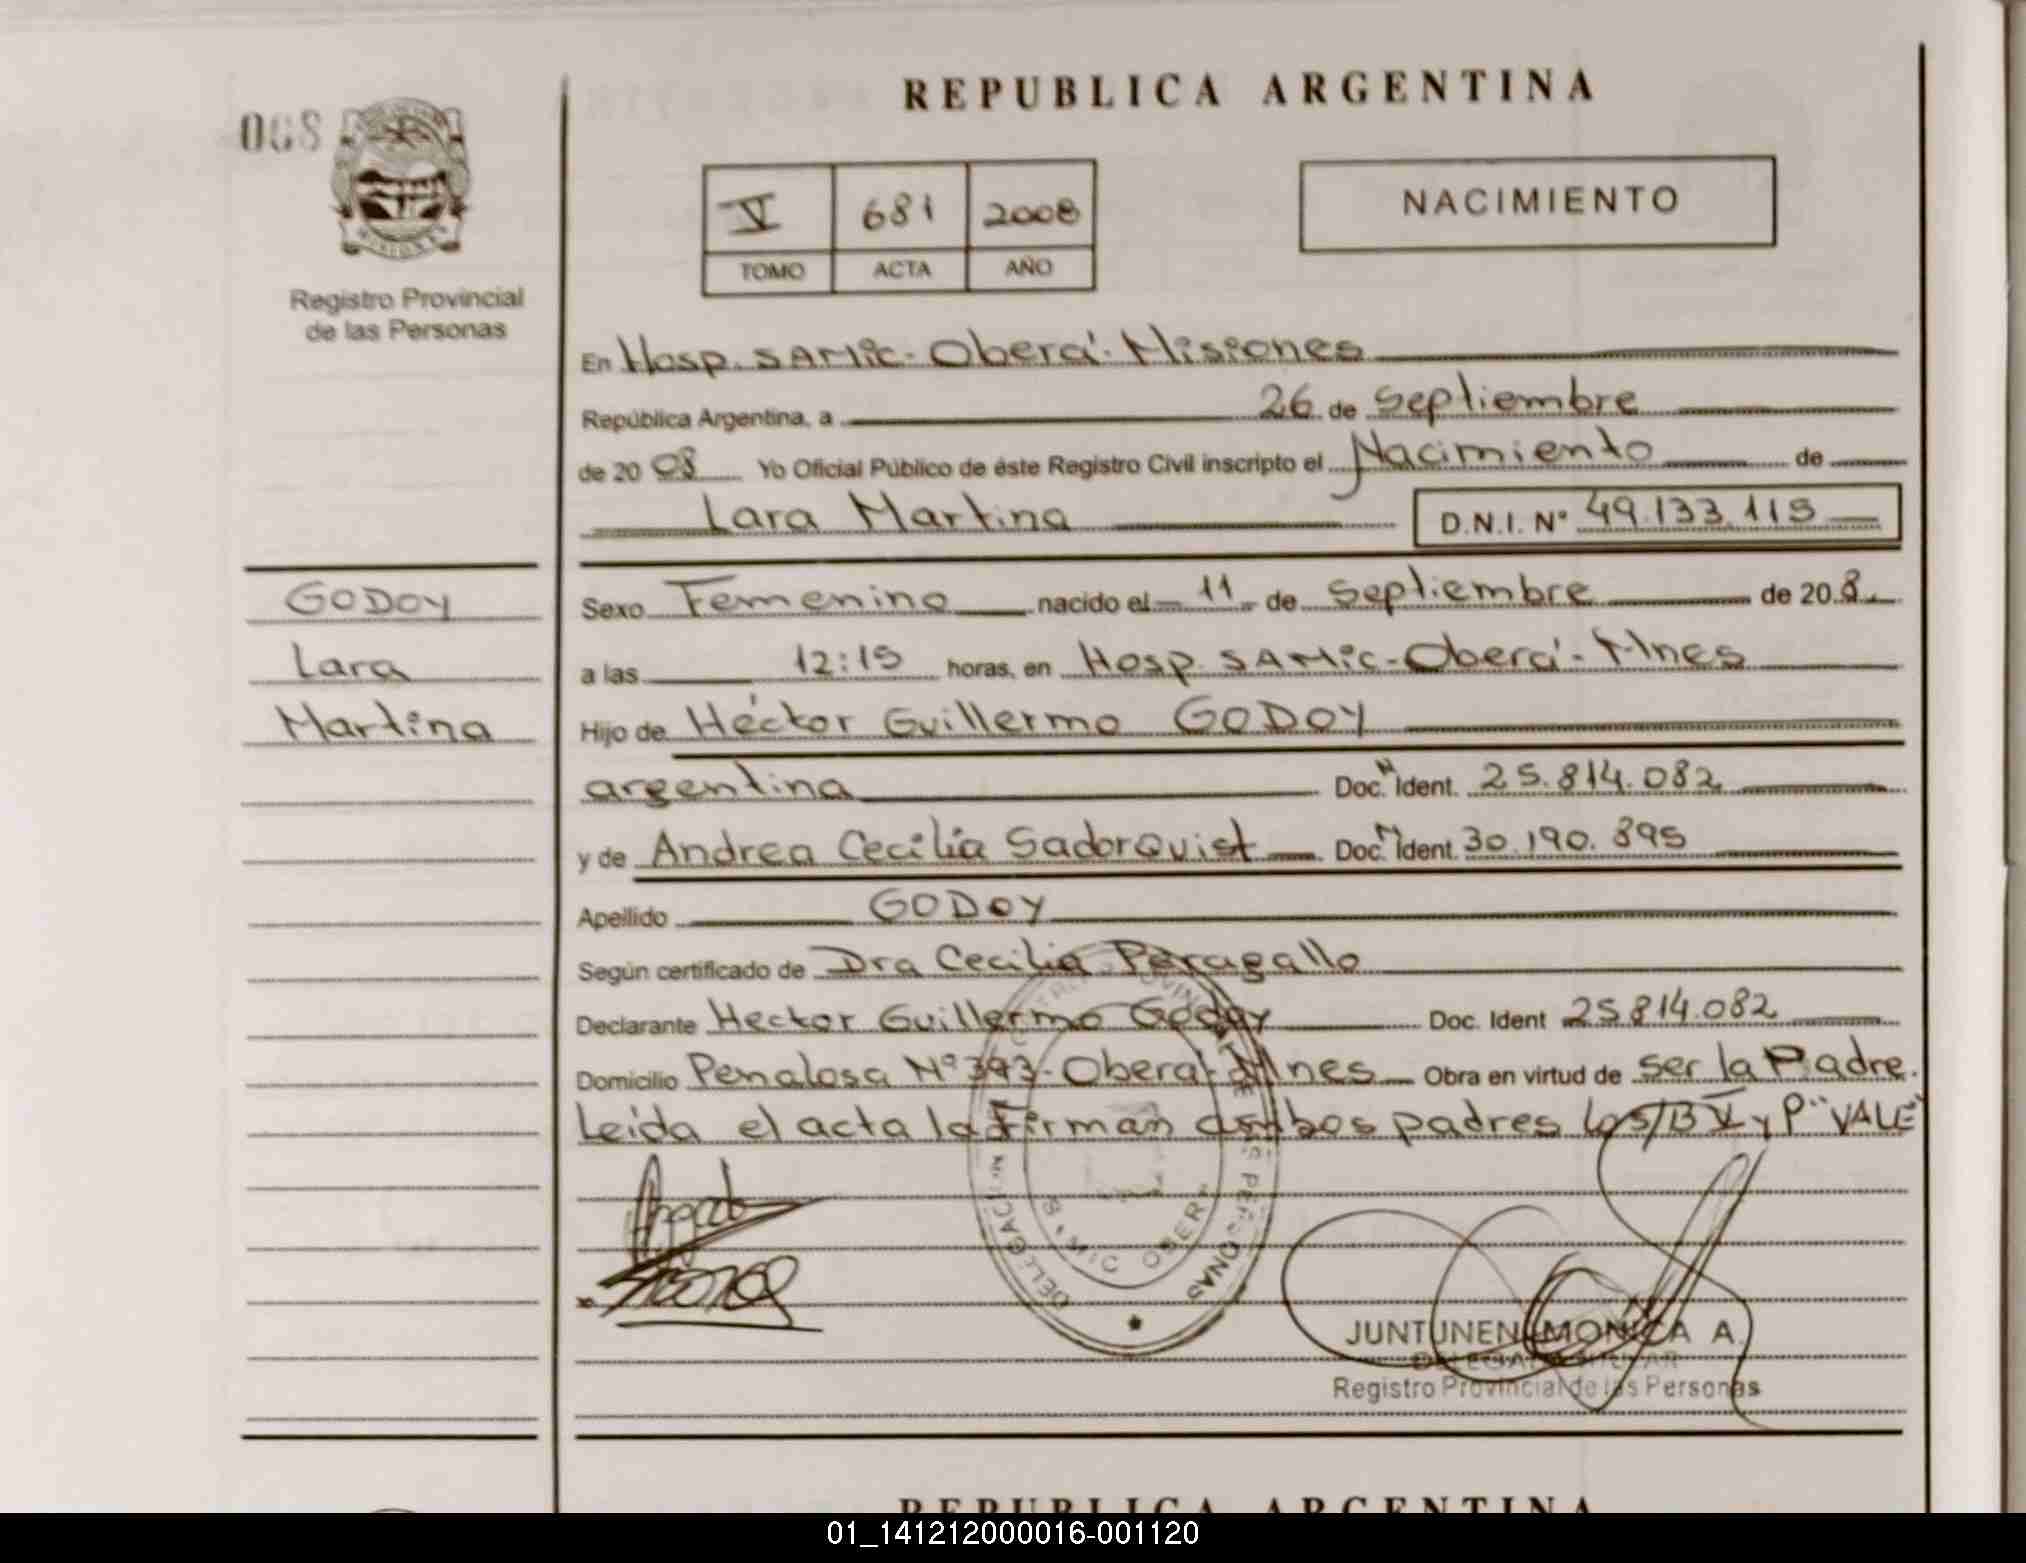 REPUBLICA ARGENTINA
068
V 681 2008
TOMO ACTA AÑO
NACIMIENTO
MISIONES
Registro Provincial
de las Personas
En Hosp. SAMic - Oberá - Misiones
República Argentina, a 26 de Septiembre
de 20 08 Yo Oficial Público de éste Registro Civil inscripto el Nacimiento de
Lara Martina D.N.I. Nº 49.133.115
GODOY
Lara
Martina
Sexo Femenino nacido el 11 de Septiembre de 20 8
a las 12:15 horas, en Hosp. SAMic - Oberá - Mnes
Hijo de Héctor Guillermo GODOY
argentina Doc. N Ident. 25.814.082
y de Andrea Cecilia Sadorquist Doc. N Ident. 30.190.895
Apellido GODOY
Según certificado de Dra Cecilia Peragallo
Declarante Hector Guillermo Godoy Doc. Ident 25814.082
Domicilio Penalosa Nº 393 - Obera - Mnes Obra en virtud de ser la Padre.
Leída el acta la Firman ambos padres Lo S/B V y P "VALE"
DELEGACION PERSONAS
SAMIC OBERA
JUNTUNEN MONICA A.
DELEGADA TITULAR
Registro Provincial de las Personas
REPUBLICA ARGENTINA
01_141212000016-001120